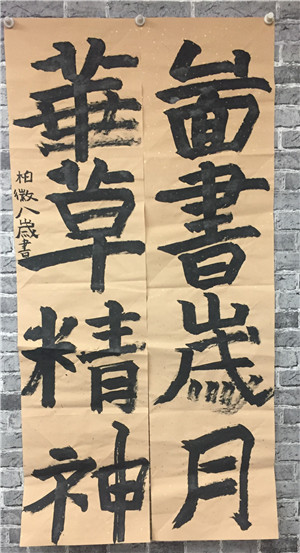 啚書歲月
華草精神
柏八歲書